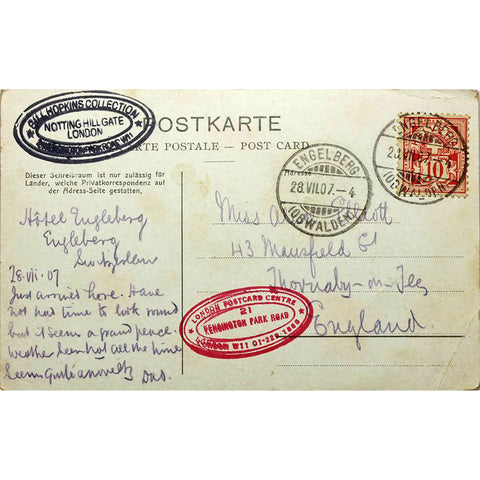 BILL HOPKINS COLLECTION
NOTTING HILL GATE
LONDON
POSTKARTE
CARTE POSTALE – POST CARD
Dieser Schreibraum ist nur zulässig für
Länder, welche Privatkorrespondenz auf
der Adress-Seite gestatten.
Adresse
ENGELBERG
28.VII.07.–4
(OBWALDEN)
ENGELBERG
28.VII.07.–4
(OBWALDEN)
10
Hôtel Engleberg
Engleberg
Switzerland
28.vii.07
Just arrived here. Have
not had time to look round
but it seems a grand place
weather been hot all the time
Seems quite a novelty
Dad.
Miss A Ellcott
43 Mansfield St
Thornaby-on-Tees
England
LONDON POSTCARD CENTRE
21
KENSINGTON PARK ROAD
LONDON W11 01-229 1888